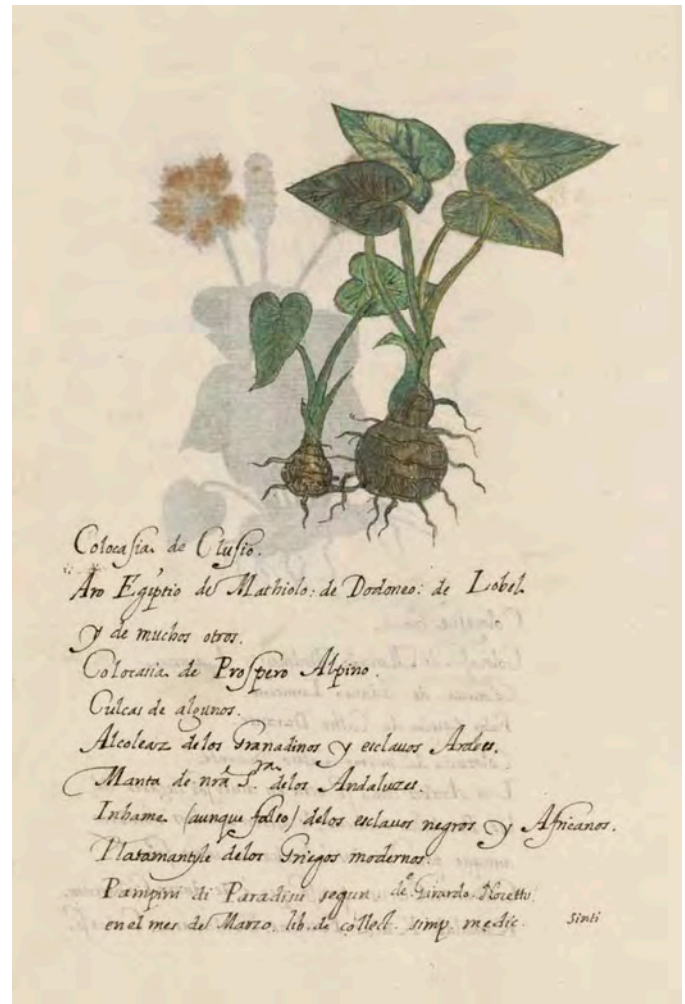 Colocasia de Clusio.
Aro Egiptio de Mathiolo: de Dodoneo: de Lobel
y de muchos otros.
Colocasia de Prospero Alpino.
Culcas de algunos.
Alcoleaz delos Granadinos y esclavos Arabes.
Manta de nrã Sra. delos Andaluzes.
Inhame (aunque falso) delos esclavos negros y Africanos.
delos Griegos modernos.
Pampini di Paradisu segun de Girardo
en el mes de Marzo. lib. de collect. simp. medic.
Sinti